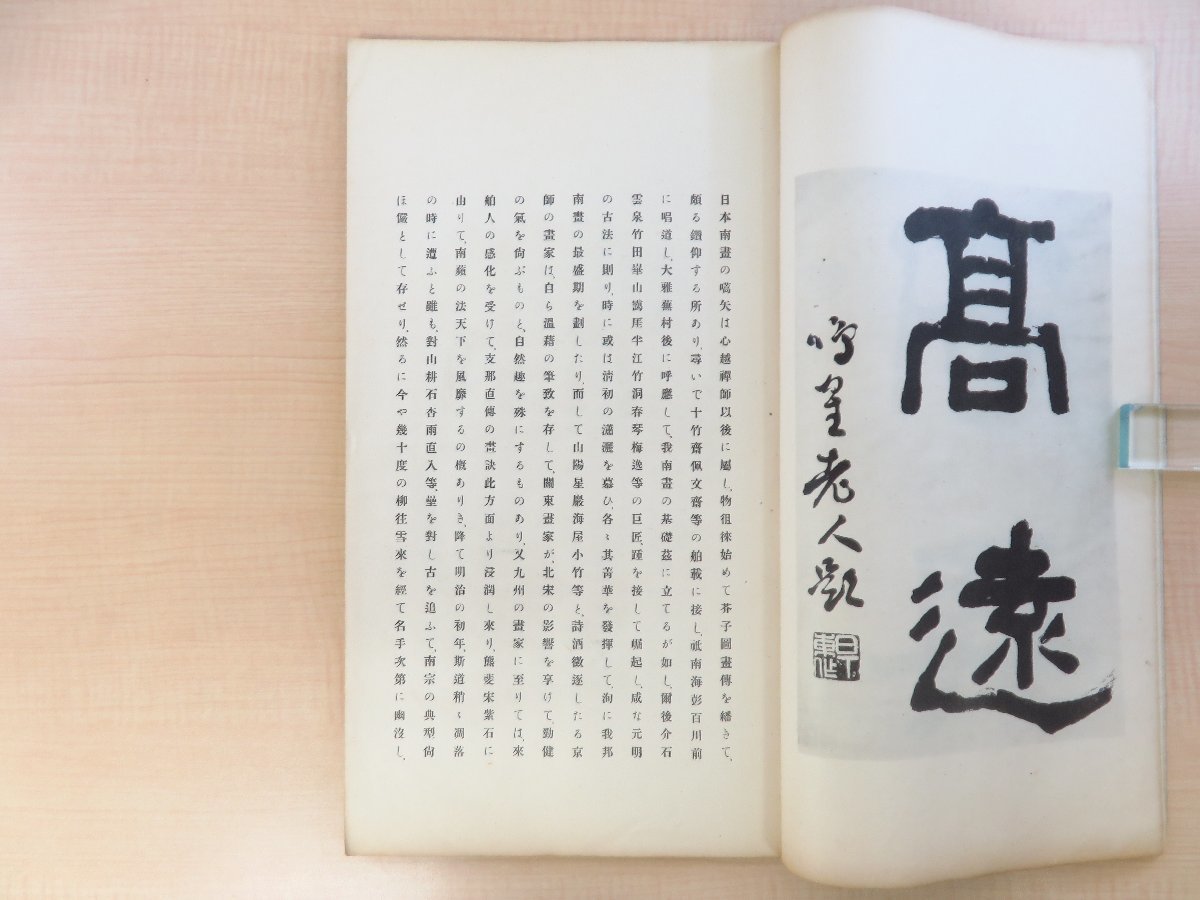 高遠
老人題
日本南畫の嚆矢は心越禪師以後に屬し、物徂徠始めて芥子園畫傳を繙きて、
頗る鑽仰する所あり、尋いで十竹齋佩文齋等の舶載に接し、祗南海彭百川前
に唱道し、大雅蕪村後に呼應して、我南畫の基礎茲に立てるが如し、爾後介石
雲泉竹田崋山靄厓半江竹洞春琴梅逸等の巨匠、踵を接して崛起し、咸な元明
の古法に則り、時に或は淸初の瀟灑を慕ひ、各〻其菁華を發揮して、洵に我邦
南畫の最盛期を劃したり、而して山陽星巖海屋小竹等と、詩酒徵逐したる京
師の畫家は、自ら溫藉の筆致を存して、關東畫家が、北宋の影響を享けて、勁健
の氣を尙ぶものと、自然趣を殊にするものあり、又九州の畫家に至りては、來
舶人の感化を受けて、支那直傳の畫訣此方面より浸潤し來り、熊斐宋紫石に
由りて、南蘋の法天下を風靡するの槪ありき、降て明治の初年、斯道稍〻凋落
の時に遭ふと雖も、對山耕石杏雨直入等、壘を對し古を追ふて、南宗の典型尙
ほ儼として存ぜり、然るに今や幾十度の柳往雪來を經て名手次第に幽沒し、